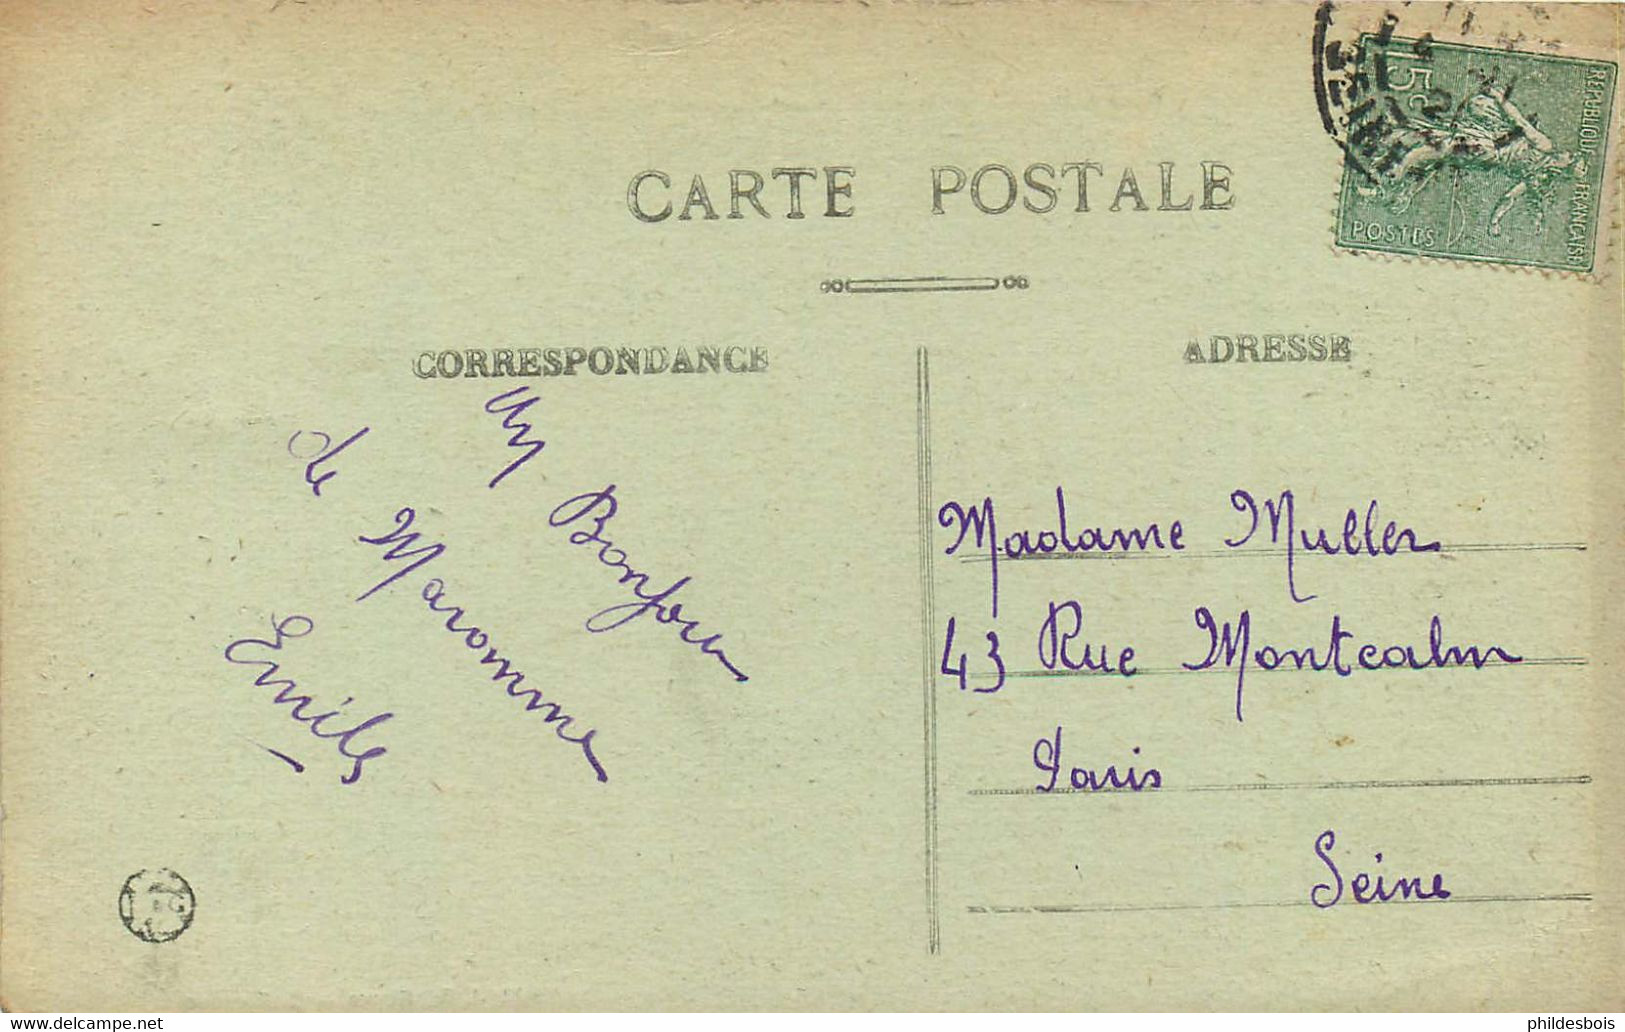 CARTE POSTALE
CORRESPONDANCE
ADRESSE
15c
REPUBLIQUE FRANÇAISE
POSTES
SEINE
Un Bonjour
de Maromme
Emile
Madame Muller
43 Rue Montcalm
Paris
Seine
www.delcampe.net
phildesbois